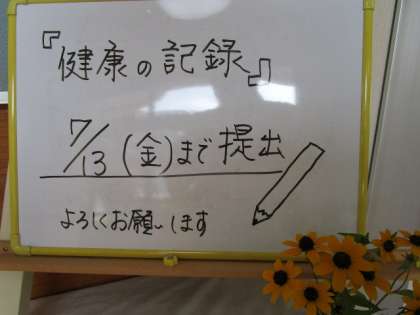 『健康の記録』
7/13(金)まで提出
よろしくお願いします